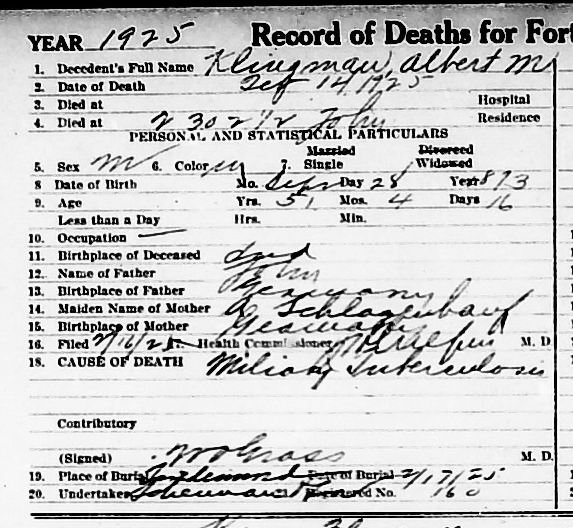 YEAR 1925 Record of Deaths for Fort
1. Decedent's Full Name Klingman, Albert M
2. Date of Death Feb 14, 1925
3. Died at Hospital
4. Died at 2302 1/2 John Residence
PERSONAL AND STATISTICAL PARTICULARS
5. Sex M 6. Color W 7. Married Single Divorced Widowed
8 Date of Birth Mo. Sept Day 28 Year 873
9. Age Yrs. 51 Mos. 4 Days 16
Less than a Day Hrs. Min.
10. Occupation —
11. Birthplace of Deceased Ind
12. Name of Father John
13. Birthplace of Father Germany
14. Maiden Name of Mother Schlagenhauf
15. Birthplace of Mother Germany
16. Filed 2/16/25 Health Commissioner M. D.
18. CAUSE OF DEATH Miliary Tuberculosis
Contributory
(Signed) Gross M. D.
19. Place of Burial Lindenwood Date of Burial 2/17/25
20. Undertaker Registered No. 160